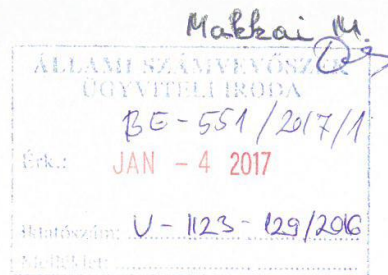 Makkai M.
ÁLLAMI SZÁMVEVŐSZÉK
ÜGYVITELI IRODA
BE-551/2017/1
Érk.: JAN -4 2017
Iktatószám: V-1123-129/2016
Melléklet: